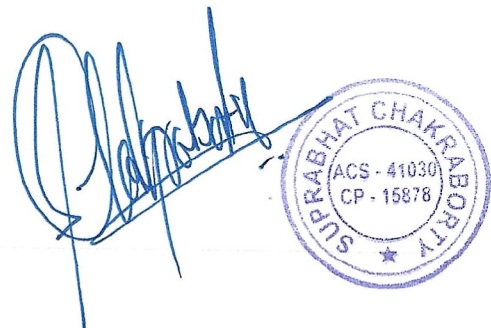 SUPRABHAT CHAKRABORTY
ACS - 41030
CP - 15878